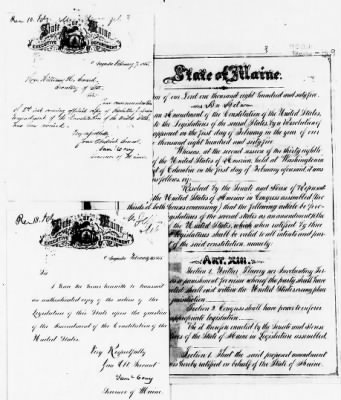 State of Maine
EXECUTIVE DEPARTMENT
Augusta February 7, 1865
Hon William H. Seward
Secretary of State
Sir
Your communication
of 3rd inst covering
of the Constitution of the United States
was received.
Very respectfully
Your Obedient Servant
Sam Cony
Governor of Maine
State of Maine
EXECUTIVE DEPARTMENT
Augusta
Sir
I have the honor herewith to transmit
an authenticated copy of the action of the
Legislature of this State upon the question
of the Amendment of the Constitution of the
United States.
Very Respectfully
Your Obt Servant
Sam Cony
Governor of Maine
State of Maine.
of our Lord one thousand eight hundred and sixty-five.
An Act
an Amendment of the Constitution of the United States,
to the Legislatures of the several States by a Resolution of
approved on the first day of February in the year of our
thousand eight hundred and sixty five
Whereas, at the second session of the thirty eighth
of the United States of America, held at Washington in
of Columbia on the first day of February aforesaid, it was
as follows, viz:
Resolved by the Senate and House of Represent
the United States of America in Congress assembled, (two
thirds of both houses concurring) that the following article be pro
Legislatures of the several states as an amendment to the
of the United States, which when ratified by three
Legislatures shall be valid to all intents and pur
of the said constitution, namely:
ART. XIII.
Section 1. Neither Slavery nor Involuntary Ser
as a punishment for crime whereof the party shall have
convicted shall exist within the United States or any place
jurisdiction
Section 2. Congress shall have power to enforce
appropriate legislation.
Be it therefore enacted by the Senate and House
of the State of Maine in Legislature assembled,
Section 1. That the said proposed amendment
is hereby ratified on behalf of the State of Maine.